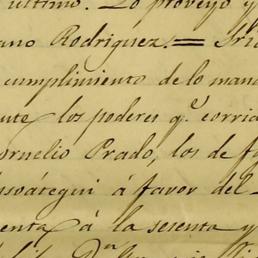 ultimo. Lo proveyó y
ano Rodriguez. =
cumplimiento de lo man
los poderes q.e corri
ornelio Prado, los de fa
soátegui á favor del
enta á la sesenta y